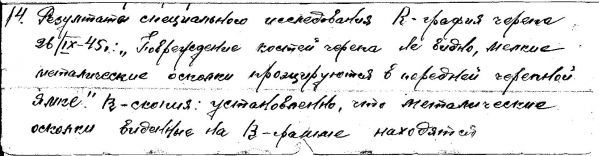 14. Результаты специального исследования R-графия черепа
26/IX-45г.: „Повреждение костей черепа не видно, мелкие
металические осколки проэцируются в передней черепной
ямке." R-скопия: установленно, что металические
осколки виденные на R-грамме находятся